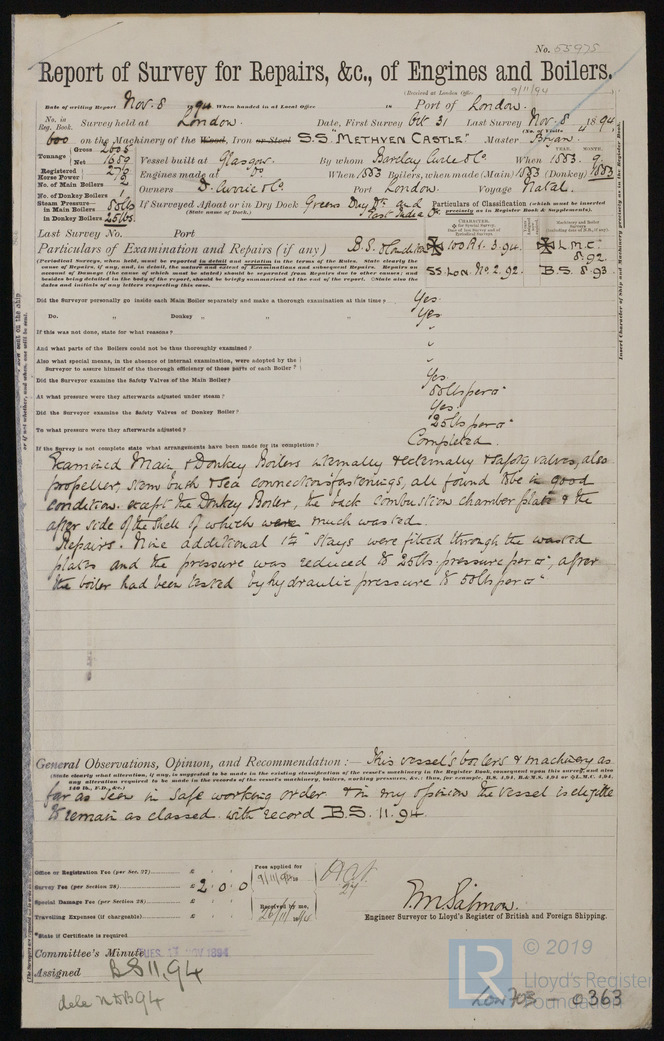 No. 55975
Report of Survey for Repairs, &c., of Engines and Boilers.
(Received at London Office 9/11/94)
Date of writing Report Nov. 8 1894 When handed in at Local Office 18 Port of London.
No. in Reg. Book. Survey held at London. Date, First Survey Oct 31 Last Survey Nov. 8 1894
(No. of Visits 4)
600 on the Machinery of the Wood, Iron or Steel S.S. "METHVEN CASTLE" Master Bryan.
Tonnage Gross 2608 Net 1689 Vessel built at Glasgow. By whom Barclay Curle & Co When 1883. 9
YEAR. MONTH.
Registered Horse Power Engines made at Do. When 1883 Boilers, when made (Main) 1883 (Donkey) 1883
No. of Main Boilers 2 Owners D. Currie & Co. Port London. Voyage Natal.
No. of Donkey Boilers 1
Steam Pressure in Main Boilers 80lb If Surveyed Afloat or in Dry Dock Greens Dry Dk. and East India Dk.
in Donkey Boilers 25lbs. (State name of Dock.)
Particulars of Classification (which must be inserted precisely as in Register Book & Supplements).
Last Survey No. Port
CHARACTER. Machinery and Boiler Surveys
Particulars of Examination and Repairs (if any) B.S. & Condition
100A1. 3.94. L.M.C. 8.92
SS. Lon. No. 2. 92. B.S. 8.93
(Periodical Surveys, when held, must be reported in detail and seriatim in the terms of the Rules. State clearly the cause of Repairs, if any, and, in detail, the nature and extent of Examinations and subsequent Repairs. Repairs on account of Damage (the cause of which must be stated) should be separated from Repairs due to other causes; and besides being detailed in the body of the report, should be briefly summarised at the end of the report. State also the dates and initials of any letters respecting this case.
Insert Character of Ship and Machinery precisely as in the Register Book.
Did the Surveyor personally go inside each Main Boiler separately and make a thorough examination at this time? Yes.
Do. „ Donkey „ „ „ Yes
If this was not done, state for what reasons?
And what parts of the Boilers could not be thus thoroughly examined?
Also what special means, in the absence of internal examination, were adopted by the Surveyor to assure himself of the thorough efficiency of those parts of each Boiler?
Did the Surveyor examine the Safety Valves of the Main Boiler? Yes
At what pressure were they afterwards adjusted under steam? 80lbs per □"
Did the Surveyor examine the Safety Valves of Donkey Boiler? Yes.
To what pressure were they afterwards adjusted? 25lbs per □"
If the Survey is not complete state what arrangements have been made for its completion? Completed.
Examined Main & Donkey Boilers internally & externally & safety valves, also
propeller, stern bush & sea connections fastenings, all found to be in good
condition. except the Donkey Boiler, the back combustion chamber plate & the
after side of the shell of which were much wasted.
Repairs. Nine additional stays were fitted through the wasted
plates and the pressure was reduced to 25lbs. pressure per □", after
the boiler had been tested by hydraulic pressure to 50lbs per □"
General Observations, Opinion, and Recommendation:— This vessel's boilers & machinery as
(State clearly what alteration, if any, is suggested to be made in the existing classification of the vessel's machinery in the Register Book, consequent upon this survey, and also any alteration required to be made in the records of the vessel's machinery, boilers, working pressures, &c.; thus, for example, B.S. 1,94, B.&M.S. 4,94 or L.M.C. 1,94, 140 lb., F.D., &c.)
far as seen in safe working order & in my opinion the vessel is eligible
to remain as classed with record B.S. 11.94.
Office or Registration Fee (per Sec. 27) £
Survey Fee (per Section 28) £ 2.0.0
Special Damage Fee (per Section 28) £
Travelling Expenses (if chargeable) £
Fees applied for 9/11/94
Received by me, 26/11/94
F.M. Salmon.
Engineer Surveyor to Lloyd's Register of British and Foreign Shipping.
*State if Certificate is required
Committee's Minute TUES. 13 NOV 1894
Assigned BS 11,94
dele NDB94
LR
© 2019
Lloyd's Register Foundation
LON 703 - 0363